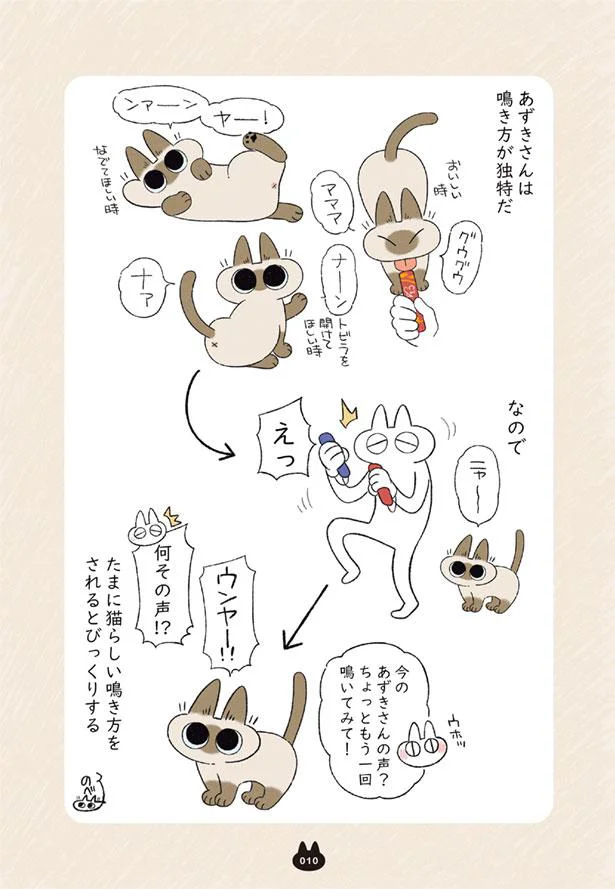 あずきさんは
鳴き方が独特だ
おいしい
時
グウグウ
アママ
ヤー！
ンァーン
なでてほしい時
ナーン
トビラを
開けて
ほしい時
ナァ
なので
ニャ〜
えっ
今の
あずきさんの声？
ちょっともう一回
鳴いてみて！
ウホッ
ウンヤー!!
何その声!?
たまに猫らしい鳴き方を
されるとびっくりする
010